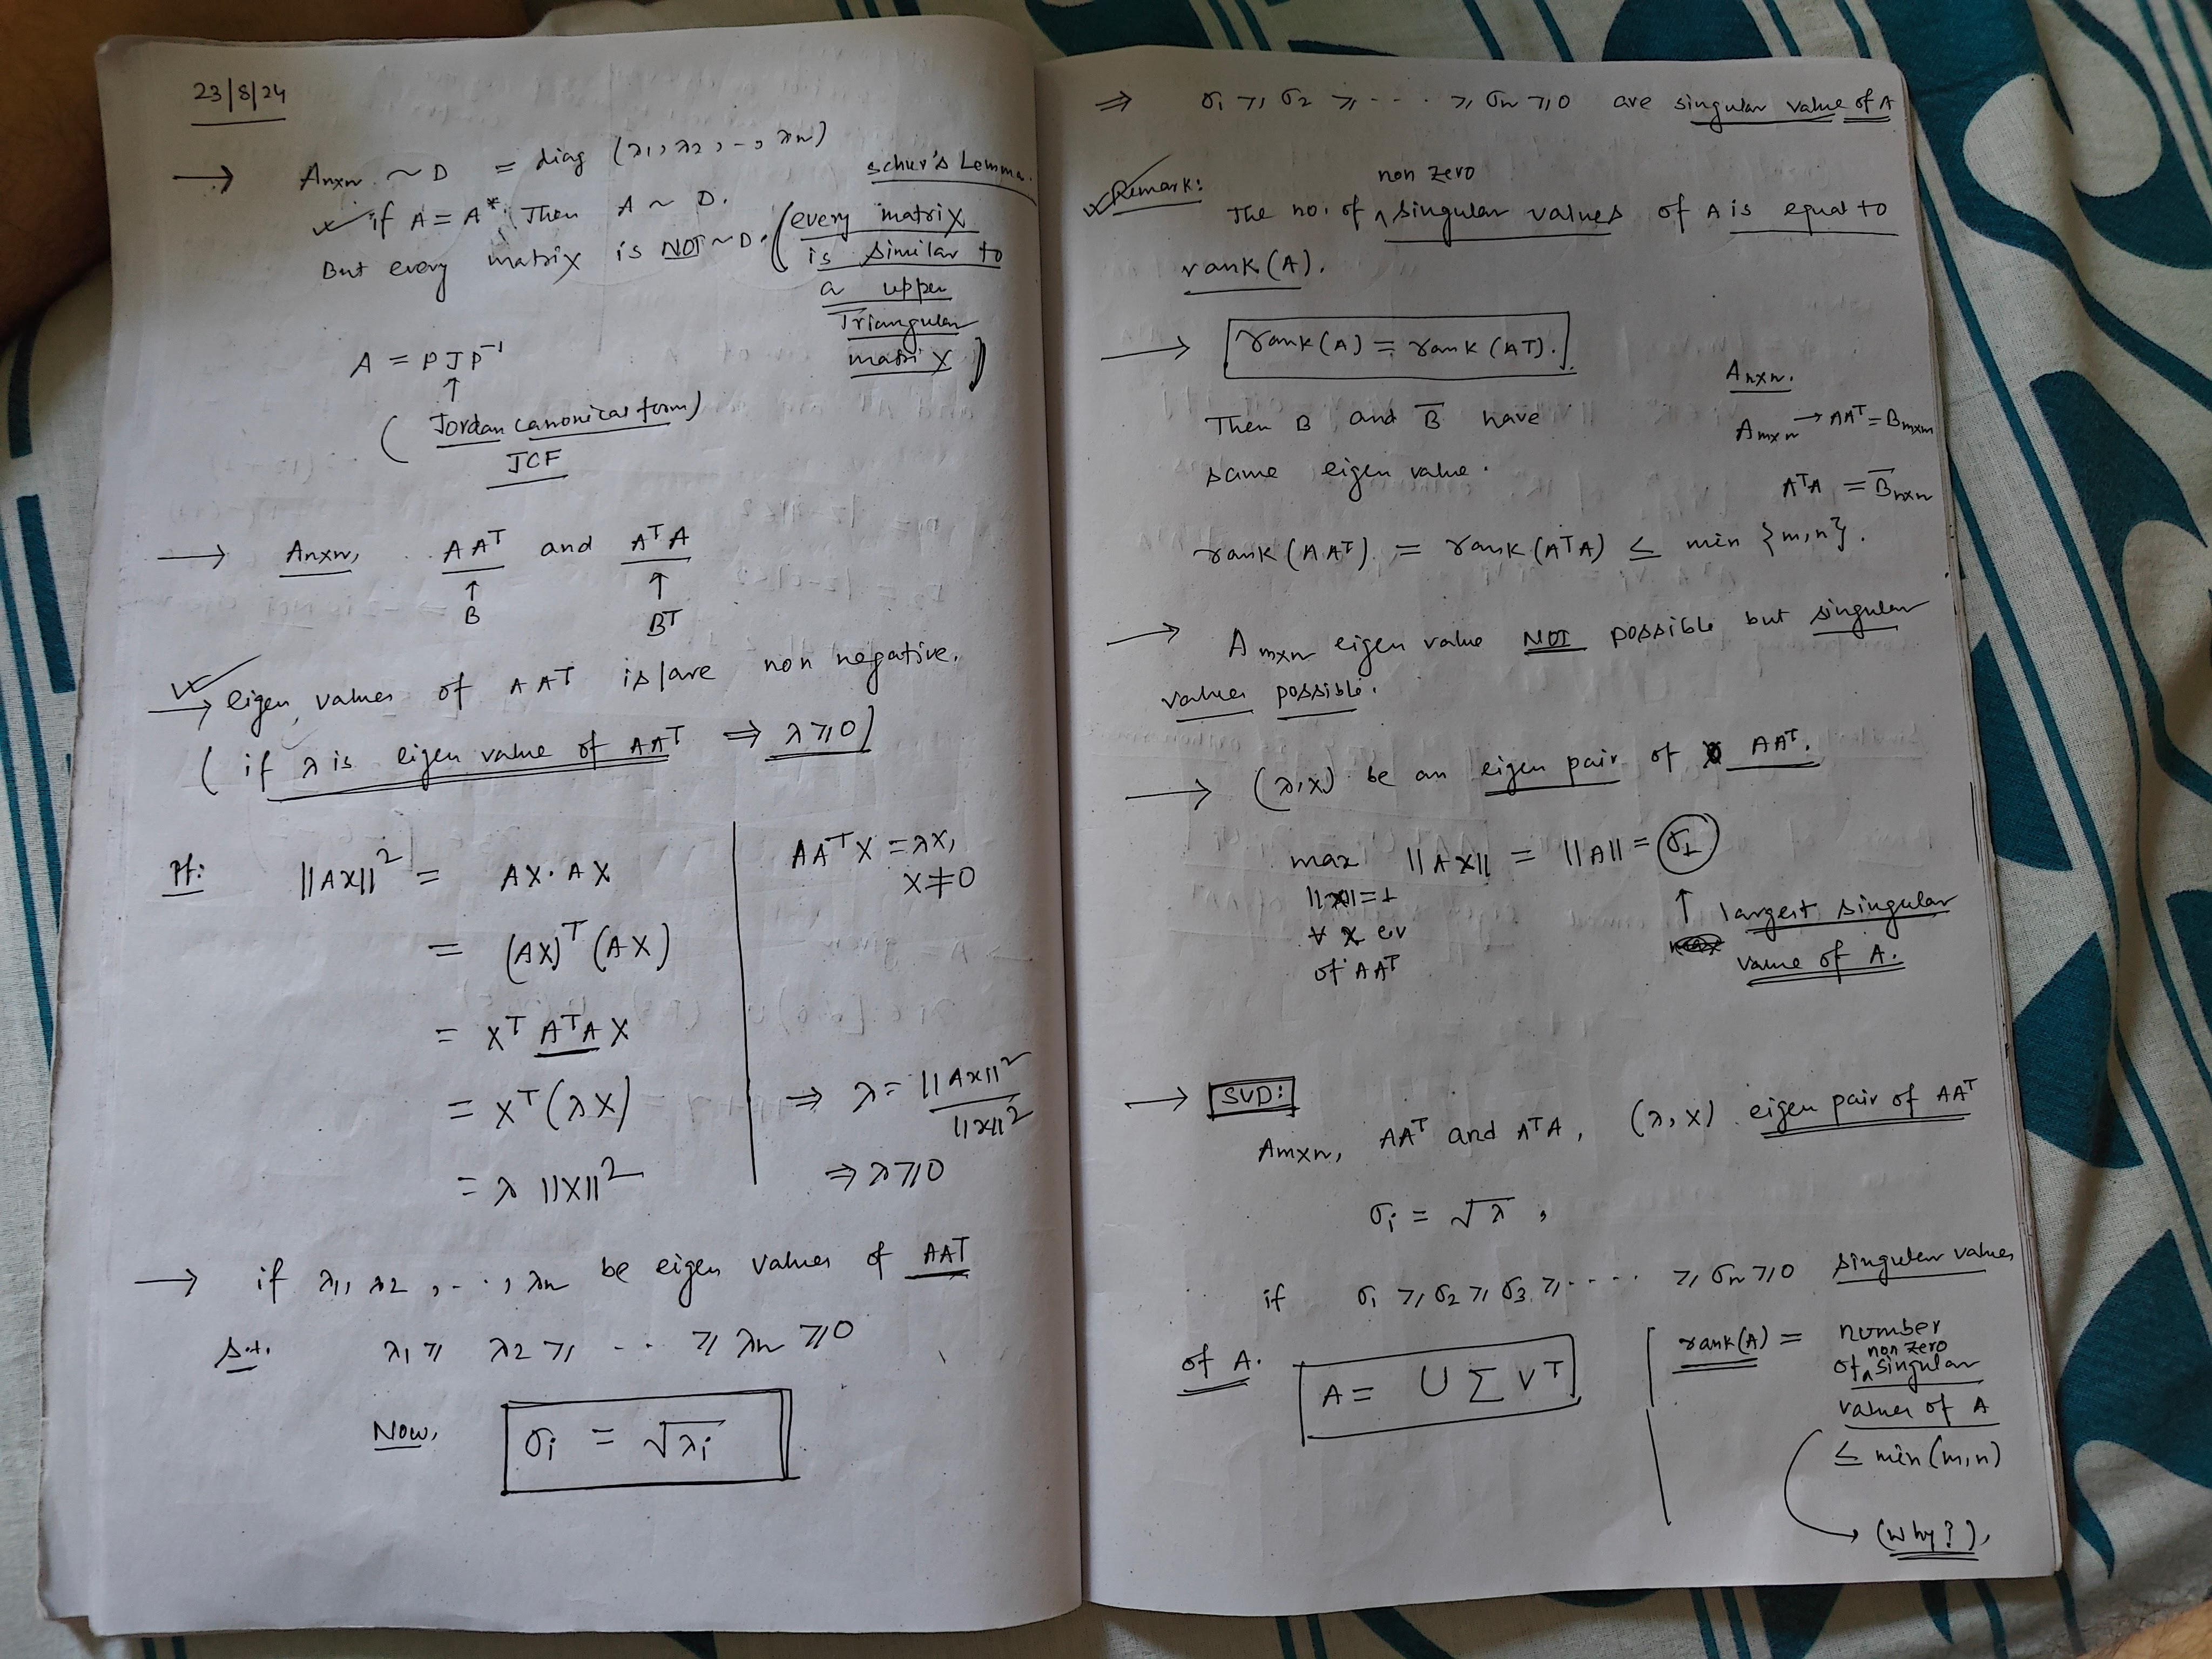 23/8/24
→ Anxn ~ D = diag (λ1, λ2, --, λn)
if A = A*, Then A ~ D.
But every matrix is NOT ~ D.
Schur's Lemma.
(every matrix
is similar to
a upper
Triangular
matrix)
A = PJP⁻¹
↑
(Jordan canonical form)
JCF
→ Anxn, AAᵀ and AᵀA
↑ ↑
B Bᵀ
→ eigen values of AAᵀ is/are non negative.
( if λ is eigen value of AAᵀ ⇒ λ ≥ 0)
Pf: ||AX||² = AX·AX
= (AX)ᵀ (AX)
= Xᵀ AᵀA X
= Xᵀ(λX)
= λ ||X||²
AAᵀX = λX,
X ≠ 0
⇒ λ = ||AX||² / ||X||²
⇒ λ ≥ 0
→ if λ1, λ2, --, λn be eigen values of AAᵀ
s.t. λ1 ≥ λ2 ≥ -- ≥ λn ≥ 0
Now, σi = √λi
⇒ σ1 ≥ σ2 ≥ --- ≥ σn ≥ 0 are singular value of A
Remark:
The no. of non zero singular values of A is equal to
rank(A).
→ rank(A) = rank(Aᵀ).
Anxn.
Then B and B̅ have
same eigen value.
Amxn → AAᵀ = Bmxm
AᵀA = B̅nxn
rank(AAᵀ) = rank(AᵀA) ≤ min {m,n}.
→ Amxn eigen value NOT possible but singular
values possible.
→ (λ,x) be an eigen pair of AAᵀ.
max ||AX|| = ||A|| = σ1
||x||=1
∀ x ev
of AAᵀ
↑ largest singular
value of A.
→ SVD:
Amxn, AAᵀ and AᵀA, (λ, x) eigen pair of AAᵀ
σi = √λ,
if σ1 ≥ σ2 ≥ σ3 ≥ ---- ≥ σn ≥ 0 singular values
of A. A = U Σ Vᵀ
rank(A) = number
of non zero singular
values of A
≤ min(m,n)
→ (why?),